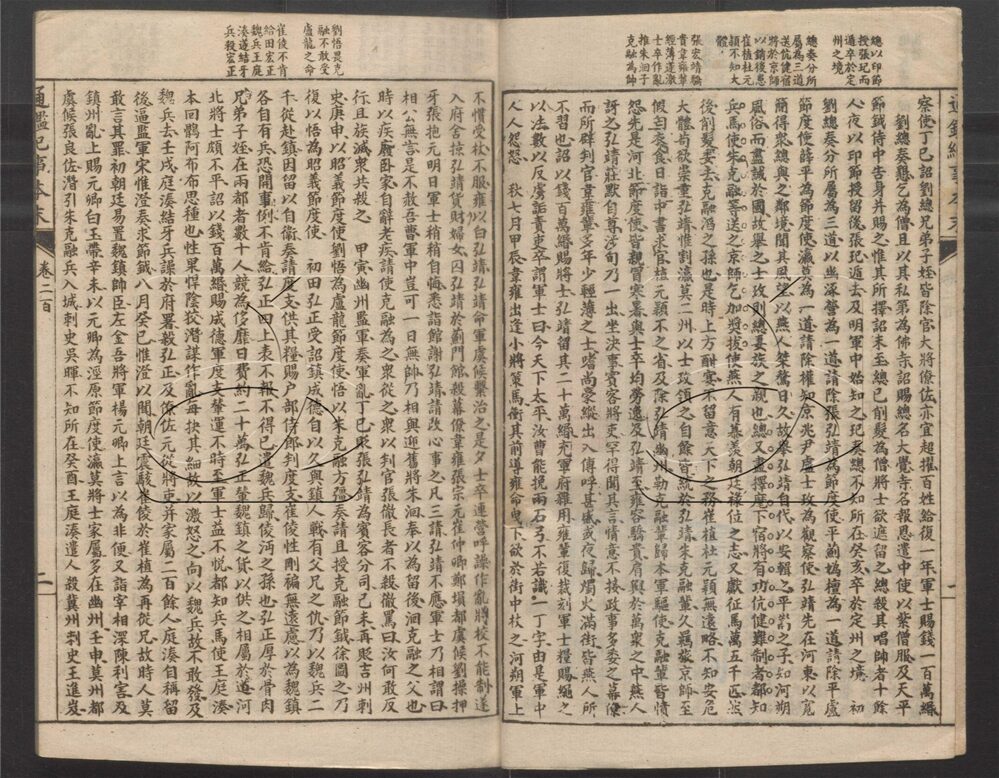 總以印節
授張玘而
遁卒於定
州之境
總奏分所
屬為三道
送伉健宿
將於京師
以銷後患
崔植杜元
穎不知大
體
張宏靖驕
貴韋雍輩
輕薄遂激
士卒作亂
推朱洄子
克融為帥
通鑑紀事本末
察使丁巳詔劉總兄弟子姪皆除官大將僚佐亦宜超擢百姓給復一年軍士賜錢一百萬緡
劉總奏懇乞為僧且以其私第為佛寺詔賜總名大覺寺名報恩遣中使以紫僧服及天平
節鉞侍中告身并賜之惟其所擇詔未至總已削髮為僧將士欲遮留之總殺其唱帥者十餘
人夜以印節授留後張玘遁去及明軍中始知之玘奏總不知所在癸亥卒於定州之境 初
劉總奏分所屬為三道以幽涿營為一道請除張弘靖為節度使平薊媯檀為一道請除平盧
節度使薛平為節度使瀛莫為一道請除權知京兆尹盧士玫為觀察使弘靖先在河東以寬
簡得衆總與之鄰境聞其風望以燕人桀驁日久故舉弘靖自代以安輯之平嵩之子知河朔
風俗而盡誠於國故舉之士玫則總妻族之親也總又盡擇麾下宿將有功伉健難制者都知
兵馬使朱克融等送之京師乞加獎拔使燕人有慕羨朝廷祿位之志又獻征馬萬五千匹然
後削髮委去克融滔之孫也是時上方酣宴不留意天下之務崔植杜元穎無遠略不知安危
大體苟欲崇重弘靖惟割瀛莫二州以士玫領之自餘皆統於弘靖朱克融輩久羈旅京師至
假匄衣食日詣中書求官植元穎不之省及除弘靖幽州勒克融輩歸本軍驅使克融輩皆憤
怨先是河北節度使皆親冒寒暑與士卒均勞逸及弘靖至雍容驕貴肩輿於萬衆之中燕人
訝之弘靖莊默自尊涉旬乃一出坐決事賓客將吏罕得聞其言情意不接政事多委之幕僚
而所辟判官韋雍輩多年少輕薄之士嗜酒縱出入傳呼甚盛或夜歸燭火滿街皆燕人所
不習也詔以錢百萬緡賜將士弘靖留其二十萬緡充軍府雜用雍輩復裁刻軍士糧賜繩之
以法數以反虜詬責吏卒謂軍士曰今天下太平汝曹能挽兩石弓不若識一丁字由是軍中
人人怨怒 秋七月甲辰韋雍出逢小將策馬衝其前導雍命曳下欲於街中杖之河朔軍士
一
劉悟畏克
融不敢受
盧龍之命
崔倰不肯
給田宏正
魏兵王庭
湊遂結牙
兵殺宏正
不慣受杖不服雍以白弘靖弘靖命軍虞候繫治之是夕士卒連營呼譟作亂將校不能制遂
入府舍掠弘靖貨財婦女囚弘靖於薊門館殺幕僚韋雍張宗元崔仲卿鄭塤都虞候劉操押
牙張抱元明日軍士稍稍自悔悉詣館謝弘靖請改心事之凡三請弘靖不應軍士乃相謂曰
相公無言是不赦吾曹軍中豈可一日無帥乃相與迎舊將朱洄奉以為留後洄克融之父也
時以疾廢卧家自辭老疾請使克融為之衆從之衆以判官張徹長者不殺徹罵曰汝何敢反
行且族滅衆共殺之 甲寅幽州監軍奏軍亂丁巳貶張弘靖為賓客分司己未再貶吉州刺
史庚申以昭義節度使劉悟為盧龍節度使悟以朱克融方彊奏請且授克融節鉞徐圖之乃
復以悟為昭義節度使 初田弘正受詔鎮成德自以久與鎮人戰有父兄之仇乃以魏兵二
千從赴鎮因留以自衞奏請度支供其糧賜戶部侍郎判度支崔倰性剛褊無遠慮以為魏鎮
各自有兵恐開事例不肯給弘正四上表不報不得已遣魏兵歸倰沔之孫也弘正厚於骨肉
兄弟子姪在兩都者數十人競為侈靡日費約二十萬弘正輦魏鎮之貨以供之相屬於道河
北將士頗不平詔以錢百萬緡賜成德軍度支輦運不時至軍士益不悅都知兵馬使王庭湊
本回鶻阿布布思種也性果悍陰狡潛謀作亂每抉其細故以激怒之向以魏兵故不敢發及
魏兵去壬戌庭湊結牙兵譟於府署殺弘正及僚佐元從將吏并家屬二百餘人庭湊自稱留
後逼監軍宋惟澄奏求節鉞八月癸巳惟澄以聞朝廷震駭崔倰於崔植為再從兄故時人莫
敢言其罪初朝廷易置魏鎮帥臣左金吾將軍楊元卿上言以為非便又詣宰相深陳利害及
鎮州亂上賜元卿白玉帶辛未以元卿為涇原節度使瀛莫將士家屬多在幽州壬申莫州都
虞候張良佐潛引朱克融兵入城刺史吳暉不知所在癸酉王庭湊遣人殺冀州刺史王進岌
通鑑紀事本末
卷二百
二